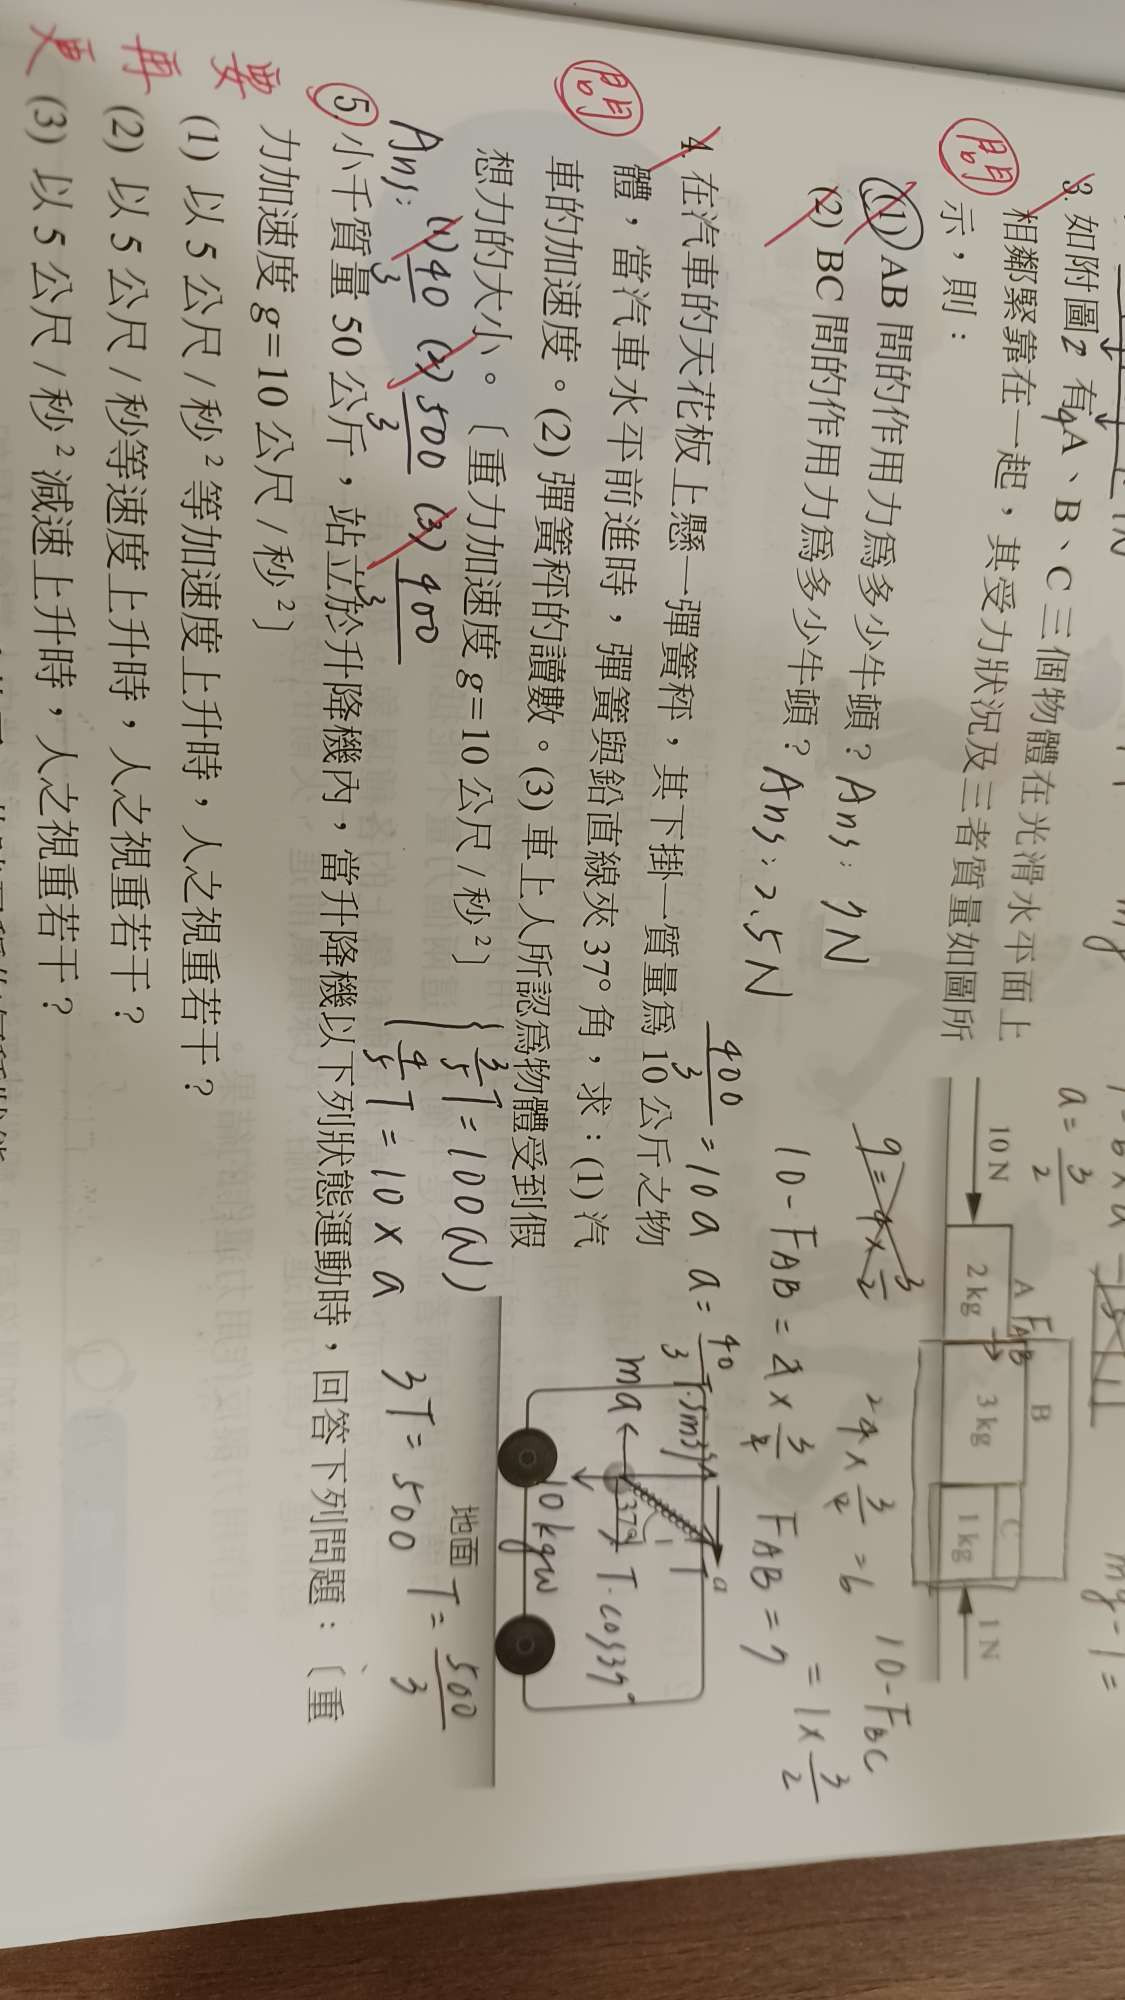 3. 如附圖2 有A、B、C三個物體在光滑水平面上
問
相鄰緊靠在一起，其受力狀況及三者質量如圖所
示，則：
(1) AB 間的作用力為多少牛頓？Ans: 7N
(2) BC 間的作用力為多少牛頓？Ans: 2.5N
a = 3/2
10 N
A
FAB
B
C
2 kg
3 kg
1 kg
1 N
9 = 4 × 3/2
10 - FAB = 2 × 3/2
FAB = 7
10 - FBC
= 1 × 3/2
問
4. 在汽車的天花板上懸一彈簧秤，其下掛一質量為 10 公斤之物
體，當汽車水平前進時，彈簧與鉛直線夾 37° 角，求：(1) 汽
車的加速度。(2) 彈簧秤的讀數。(3) 車上人所認為物體受到假
想力的大小。〔重力加速度 g＝10 公尺 / 秒²〕
Ans: (1) 40/3 (2) 500/3 (3) 400/3
400/3 = 10a a = 40/3
3/5 T = 100(N)
4/5 T = 10 × a
3T = 500 T = 500/3
T·sin37°
a
T
ma
37°
T·cos37°
10kgw
地面
5. 小千質量 50 公斤，站立於升降機內，當升降機以下列狀態運動時，回答下列問題：〔重
力加速度 g＝10 公尺 / 秒²〕
要
(1) 以 5 公尺 / 秒² 等加速度上升時，人之視重若干？
再
(2) 以 5 公尺 / 秒等速度上升時，人之視重若干？
更
(3) 以 5 公尺 / 秒² 減速上升時，人之視重若干？